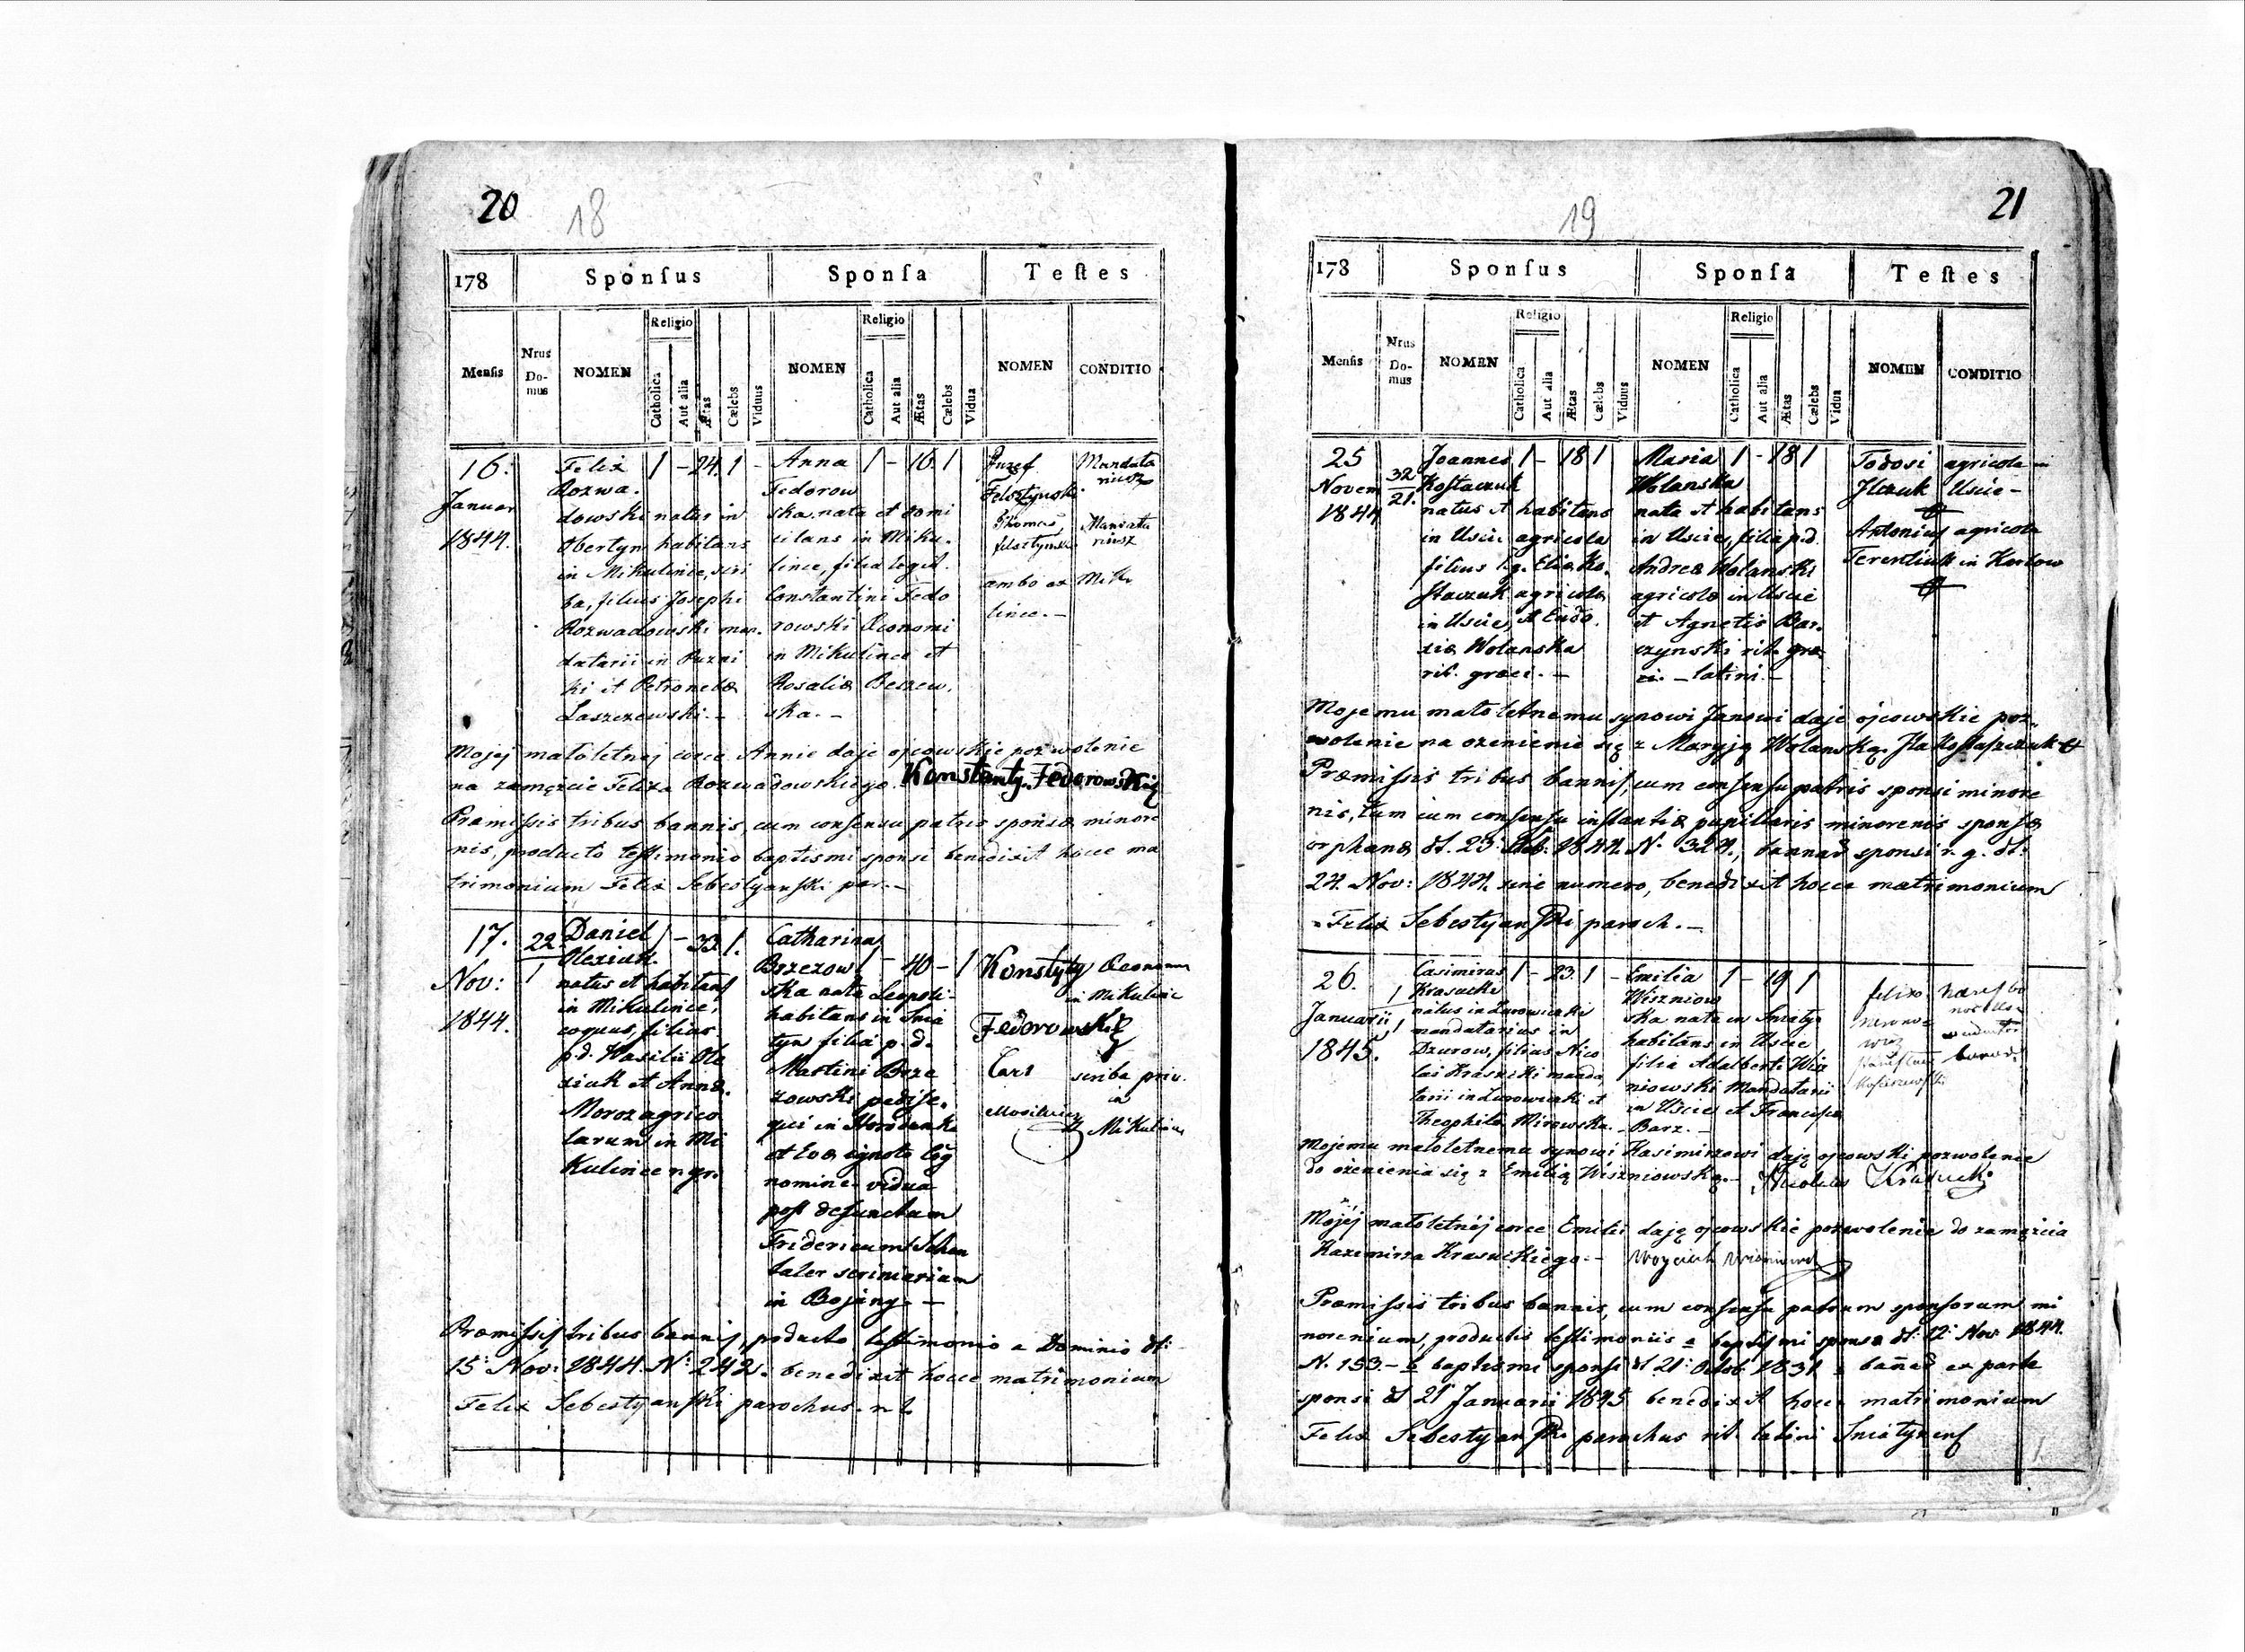 20
18
178
Sponſus
Sponſa
Teſtes
Menſis
Nrus Do-mus
NOMEN
Religio
Catholica
Aut alia
Ætas
Cælebs
Viduus
NOMEN
Religio
Catholica
Aut alia
Ætas
Cælebs
Vidua
NOMEN
CONDITIO
16.
Januar
1844.
Felix
Rozwa.
dowski natus in
Obertyn habitans
in Mikulince, scri
ba, filius Josephi
Rozwadowski man.
datarii in
ki et Petronelæ
Laszczewski. -
1 - 24. 1 -
Anna
Fedorow
ska nata et domi
cilans in Miku.
lince, filia legit.
Constantini Fedo
rowski Œconomi
in Mikulince et
Rosaliæ
ska. -
1 - 16. 1
Juzef
Felsztynski
Thomas
felsztynski
ambo ex Miku
lince. -
Mandata
riusz
Mandata
riusz
Mojej małoletnej corce Annie daje ojcowskie pozwolenie
na zamęzcie Felixa Rozwadowskiego. Konstanty Fedorowski
Præmissis tribus bannis, cum consensu patris sponsæ minore
nis, producto testimonio baptismi sponsi benedixit hocce ma
trimonium Felix Sebestyanski par. -
17.
Nov:
1844.
22
1
Daniel
Olexiuk
natus et habitans
in Mikulince,
coquus, filius
p.d. Wasilii Ole
xiuk et Annæ
Moroz agrico
larum in Mi
kulince r. gr.
1 - 33. 1.
Catharina
Brzezow
ska nata Leopoli
habitans in Snia
tyn filia p. d.
Martini Brze
zowski pedisse.
qui in Horodenka
et Evæ ignoto cog
nomine vidua
post defunctum
Fridericum Schen
taler scriniarium
in Bojany. -
1 - 40 - 1
Konstęty
Fedorowski
Carl
Mosiewicz
Œconom
in Mikulince
scriba priv.
in
Mikulince
Præmissis tribus bannis, producto testimonio a Dominio dt:
15 Nov: 1844. N: 242. benedixit hocce matrimonium
Felix Sebestyanski parochus r. l
21
19
178
Sponſus
Sponſa
Teſtes
Menſis
Nrus Do-mus
NOMEN
Religio
Catholica
Aut alia
Ætas
Cælebs
Viduus
NOMEN
Religio
Catholica
Aut alia
Ætas
Cælebs
Vidua
NOMEN
CONDITIO
25
Novem
1844
32
21.
Joannes
Kostaczuk
natus et habitans
in Uscie agricola
filius Eliæ Ko.
staczuk agricolæ
in Uscie, et Eudo.
xiæ Wolanska
rit. græci. -
1 - 18 1
Maria
Wolanska
nata et habitans
in Uscie, filia p.d.
Andreæ Wolanski
agricolæ in Uscie
et Agnetis Bar.
czynski rit. græ
ci. - latini. -
1 - 18 1
Todosi
Ilczuk
Antonius
Terentiuk
agricola in
Uscie -
agricola
in Karlow
Mojemu małoletnemu synowi Janowi daje ojcowskie poz.
wolenie na ozenienie się z Maryją Wolanską.
Præmissis tribus bannis, cum consensu patris sponsi minore
nis, tum cum consensu instantiæ pupillaris minorenis sponsæ
orphanæ dt. 23 1844. N. 324., bannas sponsi r. g. dt:
24. Nov: 1844. sine numero, benedixit hocce matrimonium
Felix Sebestyanski paroch. -
26.
Januarii
1845.
1
1
Casimirus
Krasucki
natus in
mandatarius in
Dzurow, filius Nico
lai Krasucki manda
tarii in et
Theophilæ Mirowska. -
1 - 23. 1 -
Emilia
Wiszniow
ska nata in Sniatyn
habitans in Uscie
filia Adalberti Wisz
niowski Mandatarii
in Uscie et Francisca
Barz. -
1 - 19 1
felix
Mojemu małoletnemu synowi Kasimirzowi dają ojcowski pozwolenie
do ożenienia się z Emilią Wiszniowską. - Nicolaus Krasucki
Mojéj małoletnéj corce Emilii dają ojcowskie pozwolenie do zamęzcia
Kazimirza Krasuckiego. - Woyciech
Præmissis tribus bannis, cum consensu patrum sponsorum mi
norenium, productis testimoniis a baptismi sponsæ dt: 12 Nov: 1844.
N. 153. - b baptismi sponsi dt 21: Octob 1831 c bañas ex parte
sponsi dt 21 Januarii 1845 benedixit hocce matrimonium
Felix Sebestyanski parochus rit. latini Sniatynens